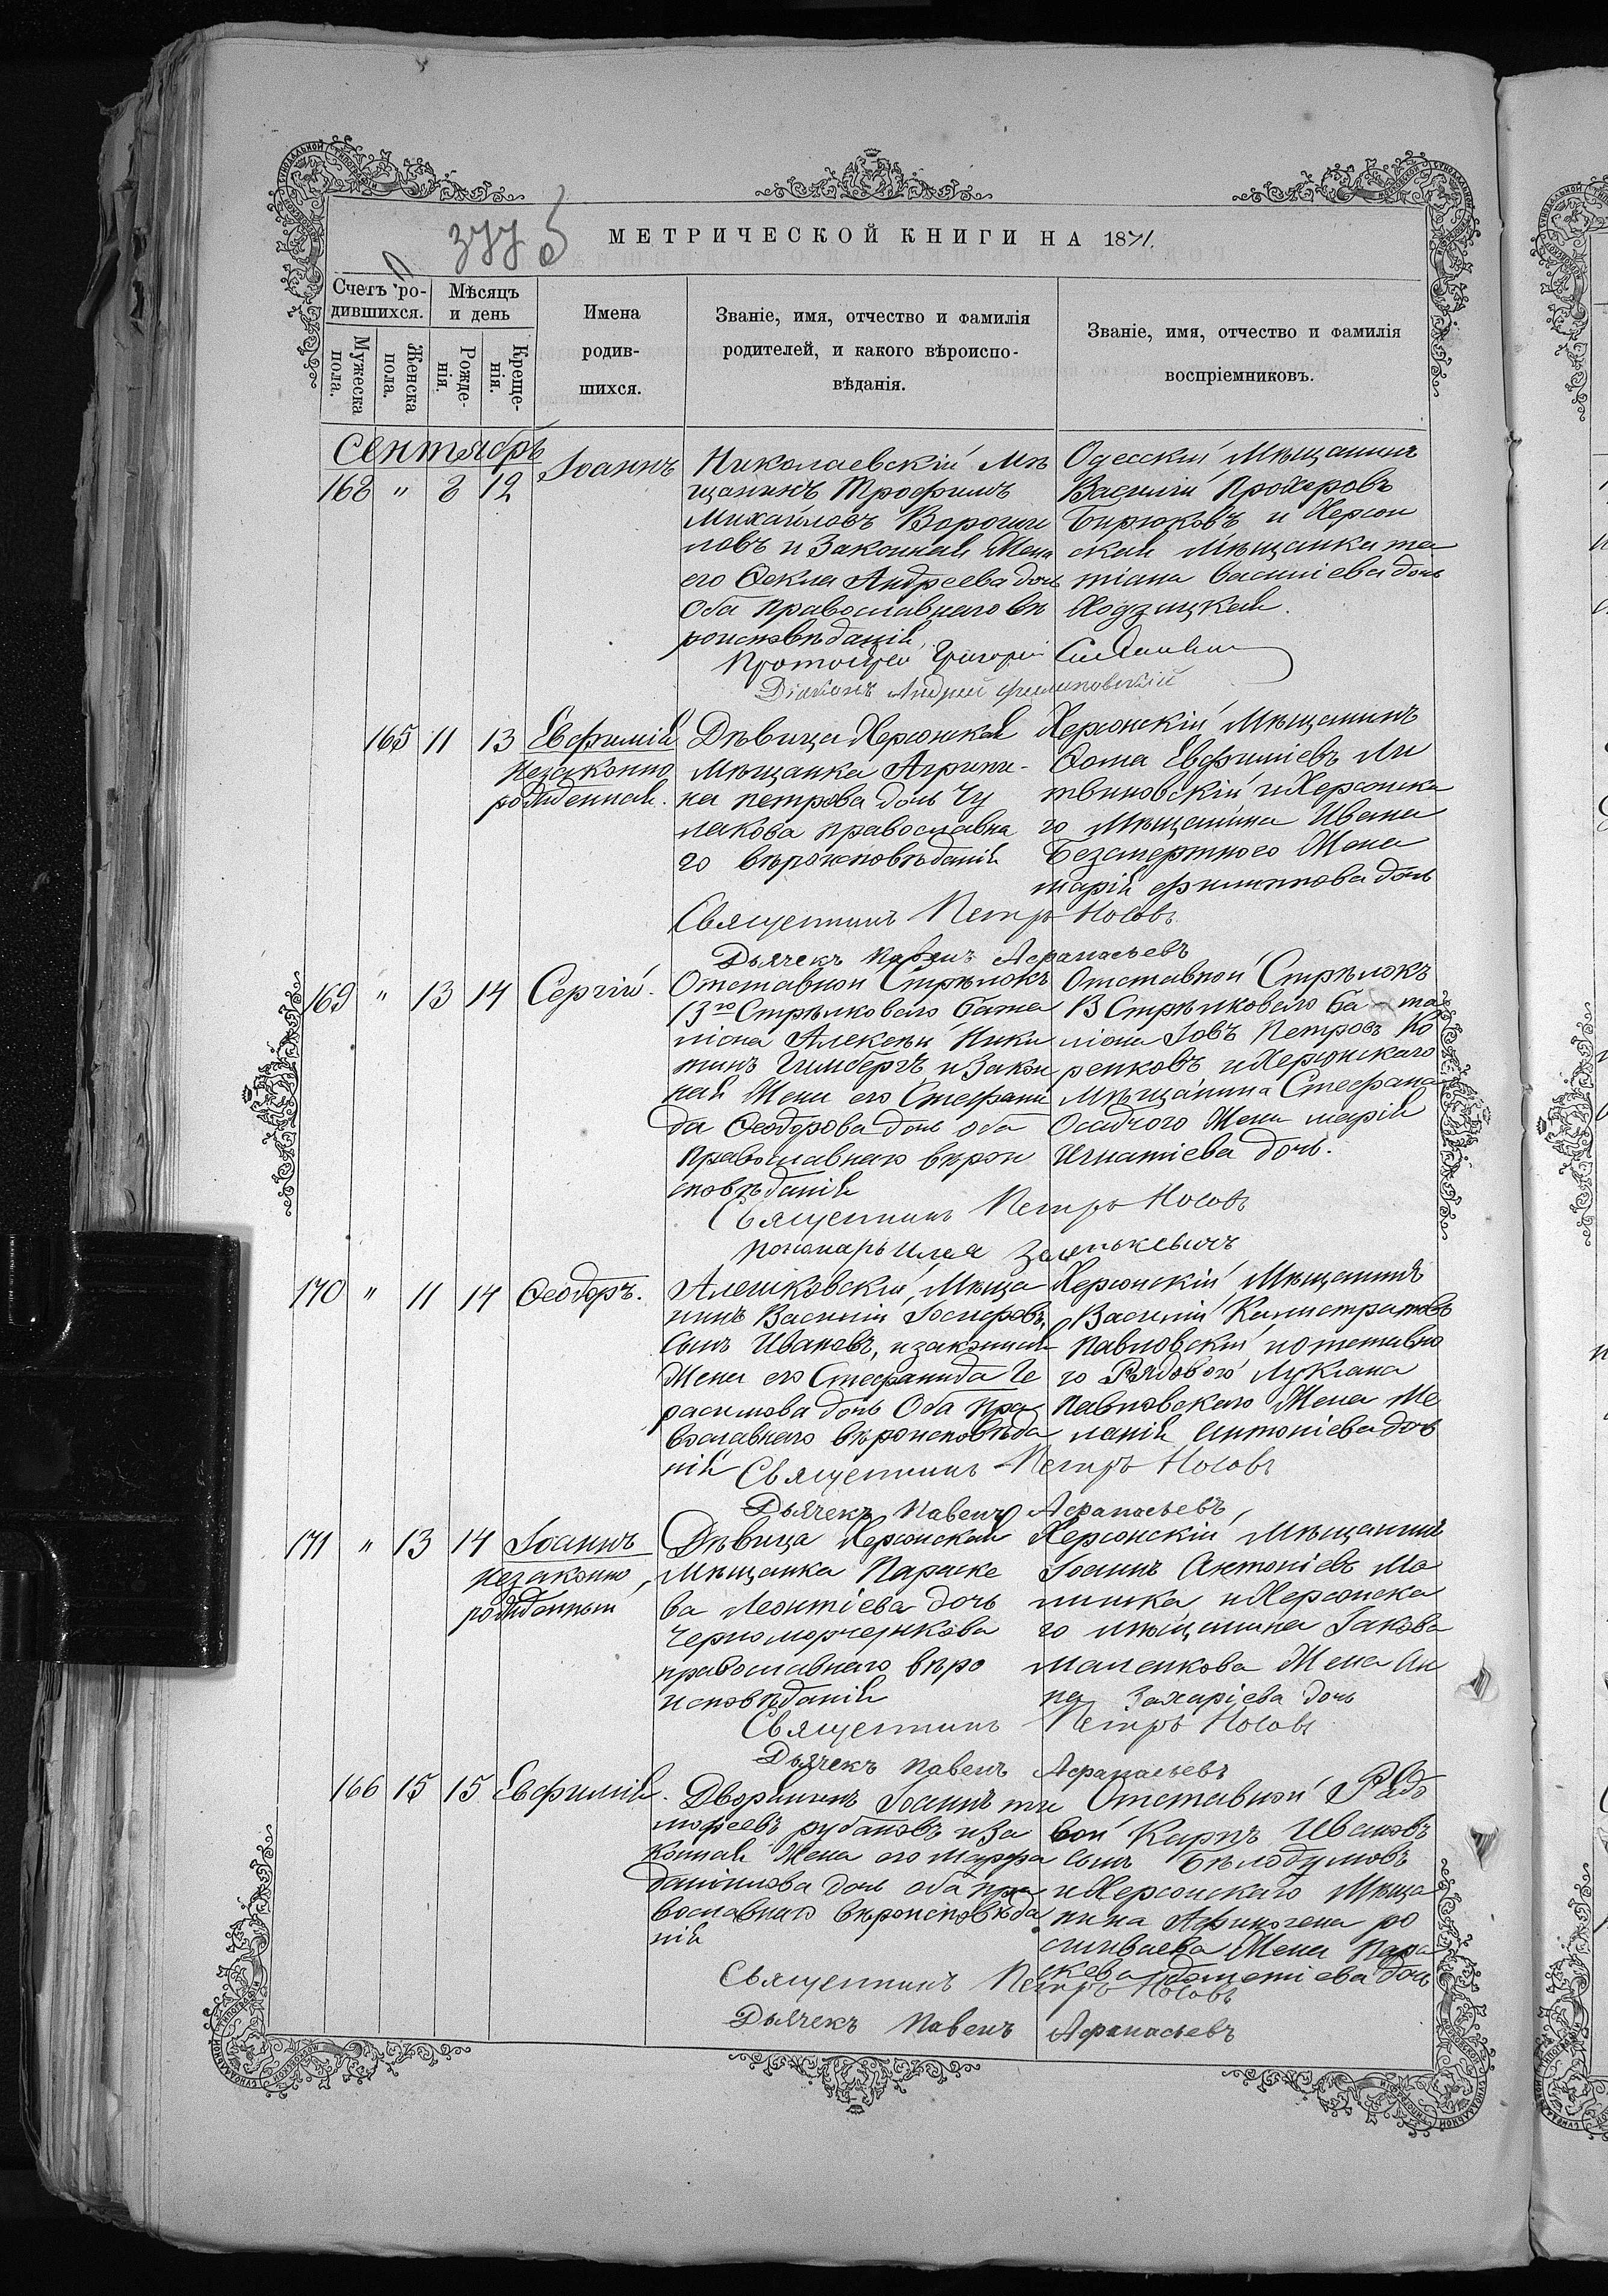 МЕТРИЧЕСКОЙ КНИГИ НА 1871.
Счетъ ро-
дившихся.
Мужеска
пола.
Женска
пола.
Мѣсяцъ
и день
Рожде-
нія.
Креще-
нія.
Имена
родив-
шихся.
Званіе, имя, отчество и фамилія
родителей, и какого вѣроиспо-
вѣданія.
Званіе, имя, отчество и фамилія
воспріемниковъ.
Сентябрь
168 " 8 12
Іоаннъ
Николаевскій Мѣ
щанинъ Трофимъ
Михайловъ
ловъ и Законная Жена
его Ѳекла Андреева дочь
Оба православнаго вѣ
роисповѣданія
Одесскій Мѣщанинъ
Василій Прохоровъ
Бирюковъ и Херсон
ская Мѣщанка та
тіана Василіева дочь
Ходзицкая.
Протоіерей Григорій
Діаконъ Андрей
165 11 13
Евфимія
незаконно
рожденная.
Дѣвица Херсонская
Мѣщанка Агрипи-
на петрова дочь Чу
макова православна
го вѣроисповѣданія
Херсонскій Мѣщанинъ
Ѳома Евфиміевъ Ли
твиновскій и Херсонска
го Мѣщанина Ивана
Безсмертного Жена
марія филиппова дочь
Священникъ Петръ Носовъ
Дьячекъ Павелъ Афанасьевъ
169 " 13 14
Сергій.
Отставной Стрѣлокъ
13го Стрѣлковаго бата
ліона Алексѣй Ники
тинъ Гимбергъ и Закон
ная Жена его Стефани
да Ѳеодорова дочь оба
Православнаго вѣрои
сповѣданія
Отставной Стрѣлокъ
13 Стрѣлковаго ба - та
ліона Іовъ Петровъ Ко
ренковъ и Херсонскаго
Мѣщанина Стефана
Осадчого Жена марія
Игнатіева дочь.
Священникъ Петръ Носовъ
Пономарь Илья
170 " 11 14
Ѳеодоръ.
Алешковскій Мѣща
нинъ Василій Іосифовъ
сынъ Ивановъ, и законная
Жена его Стефанида Ге
расимова дочь Оба Пра
вославнаго вѣроисповѣда
нія
Херсонскій Мѣщанинъ
Василій Калистратовъ
Павловскій и отставно
го Рядового Лукіана
Павловскаго Жена Ме
ланія Антоніева дочь
Священникъ Петръ Носовъ
Дьячекъ Павелъ Афанасьевъ
171 " 13 14
Іоаннъ
незаконно
рожденный
Дѣвица Херсонская
Мѣщанка Параске
ва Леонтіева дочь
Черноморченкова
православнаго вѣро
исповѣданія
Херсонскій Мѣщанинъ
Іоаннъ Антоніевъ Ма
линка и Херсонска
го мѣщанина Іакова
Маленкова Жена Ан
на Захаріева дочь
Священникъ Петръ Носовъ
Дьячекъ Павелъ Афанасьевъ
166 15 15
Евфимія.
Дворянинъ Іоаннъ ти
мофеевъ рубановъ и За
конная Жена его Марфа
даніилова дочь оба пра
вославнаго вѣроисповѣда
нія
Отставной Рядо
вой Карпъ Ивановъ
сынъ Бѣлодумовъ
и Херсонскаго Мѣща
нина Афиногена
Жена Пара
скева дочь
Священникъ Петръ Носовъ
Дьячекъ Павелъ Афанасьевъ